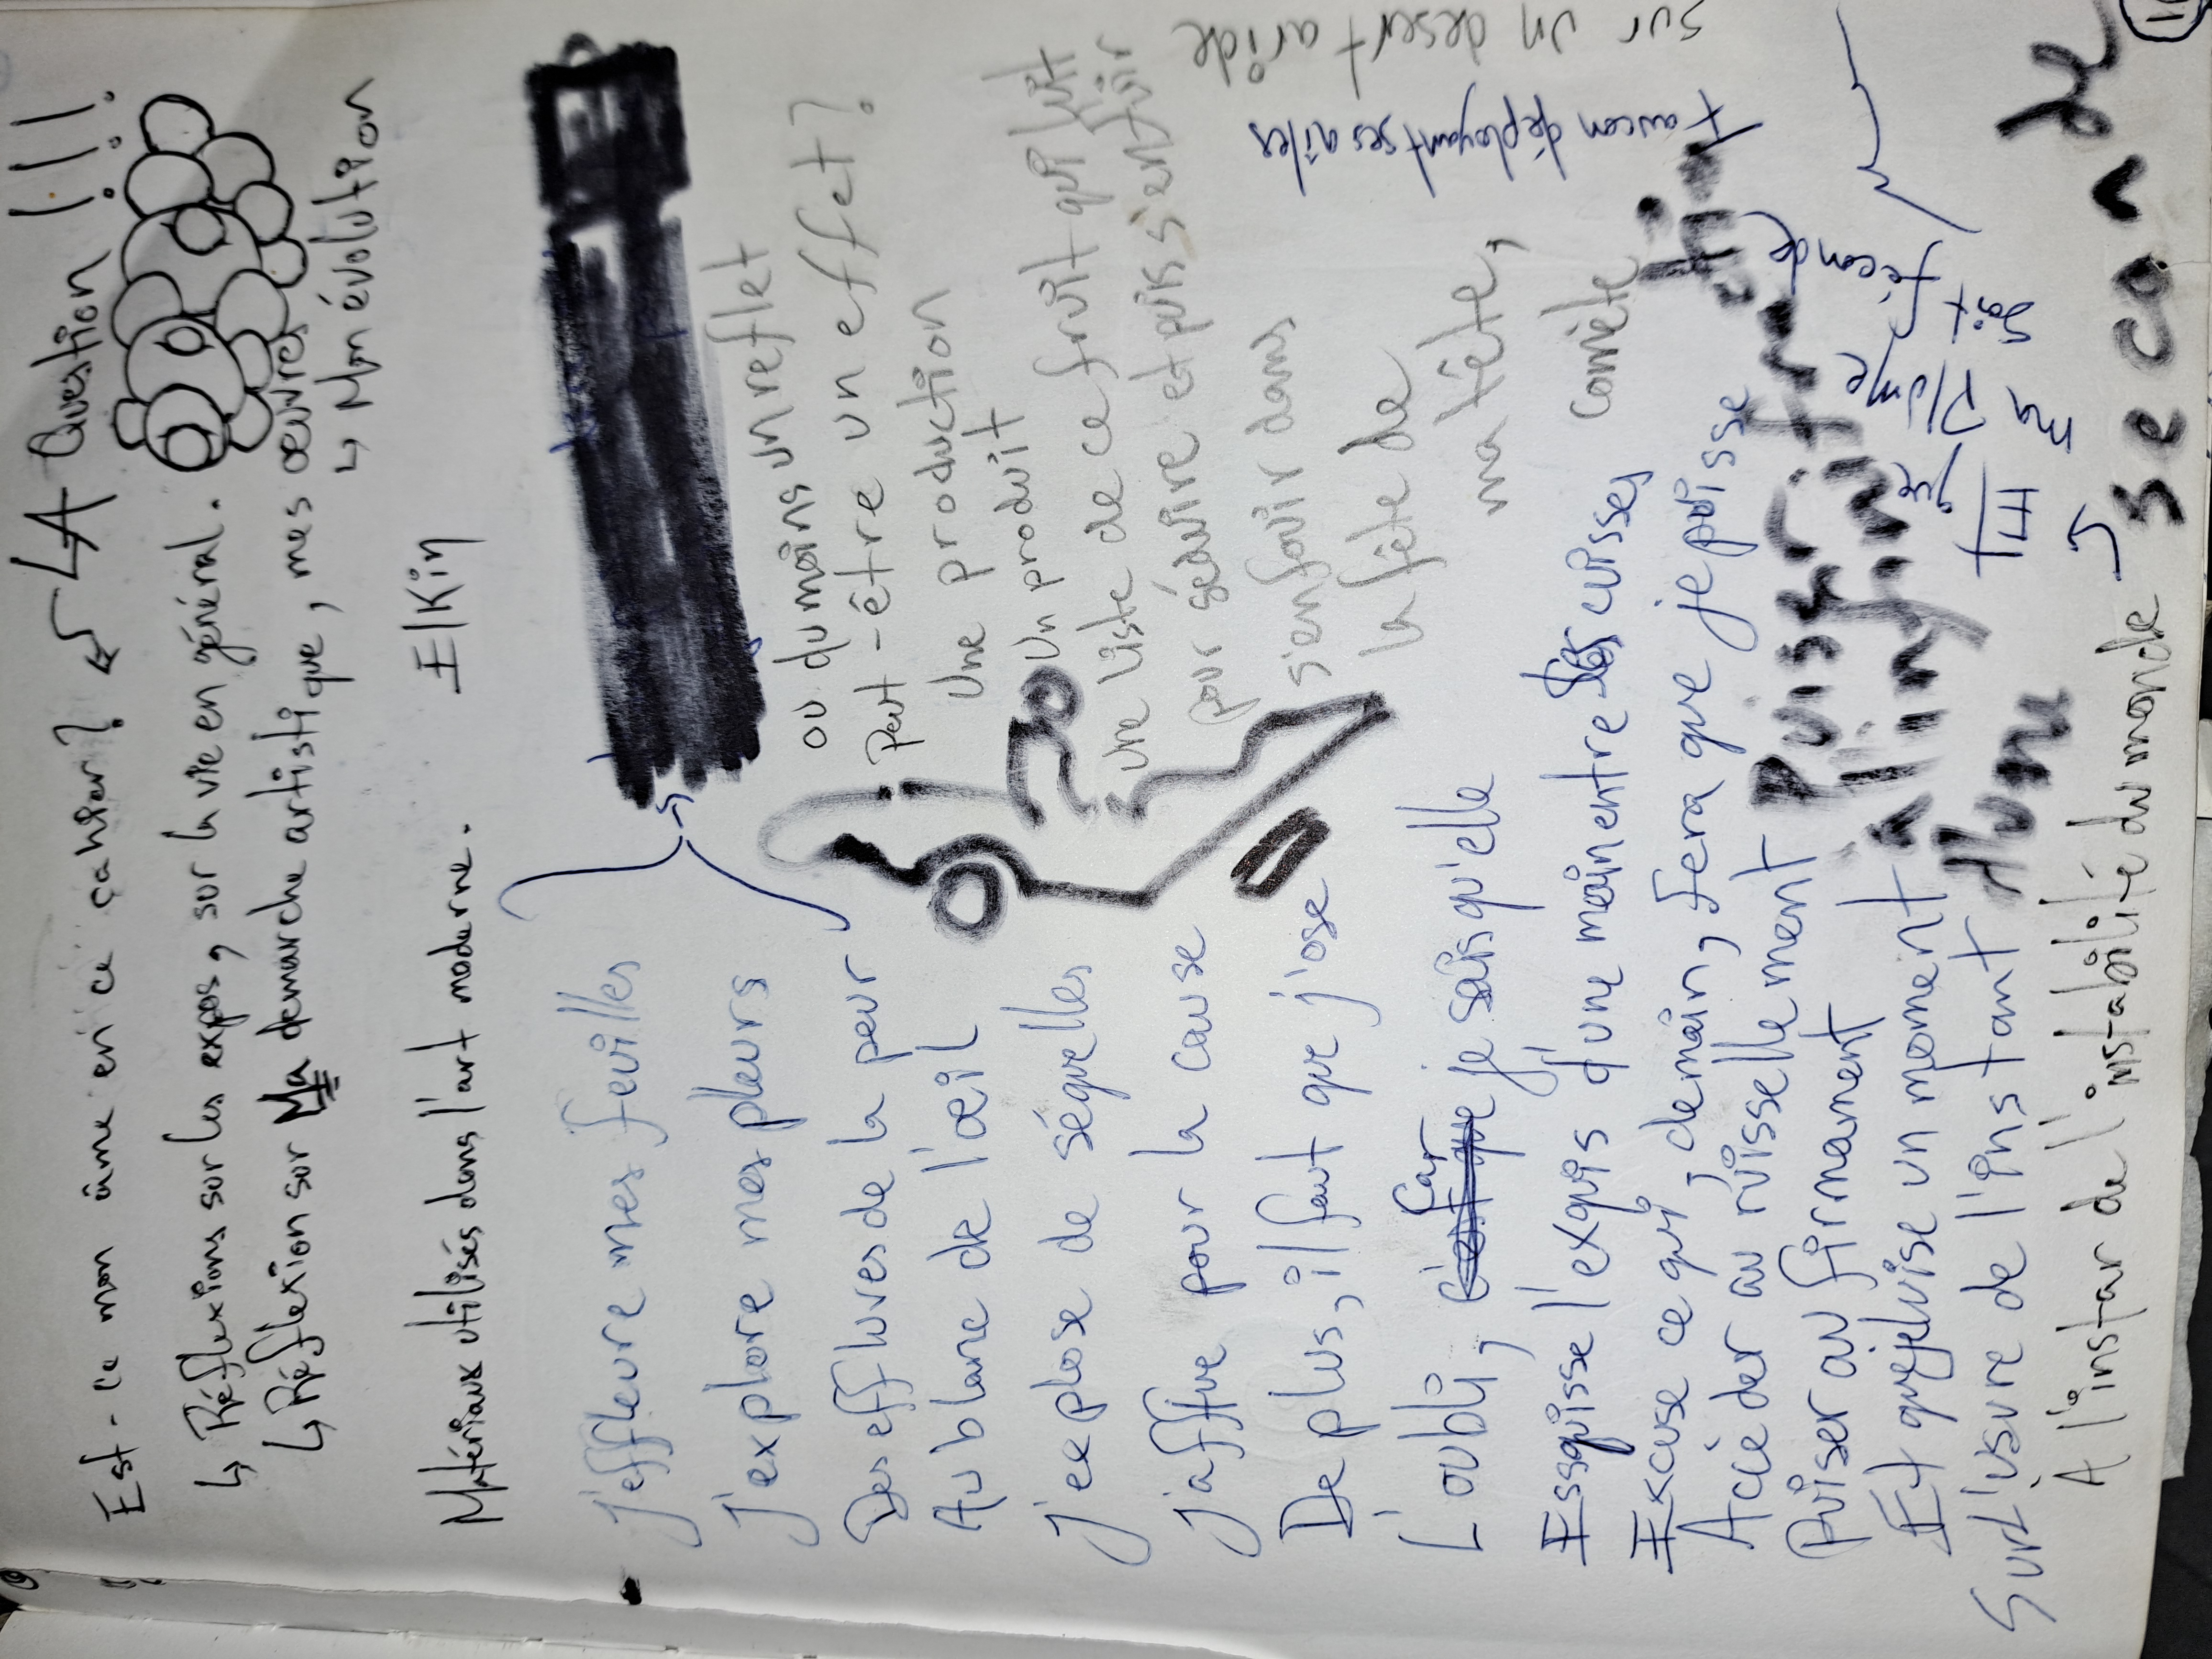 Est-ce mon âme en ce cahier? LA Question !!!
↳ Réflexions sur les expos, sur la vie en général.
↳ Réflexion sur Ma demarche artistique, mes œuvres
↳ Mon évolution
Matériaux utilisés dans l'art moderne. Elkin
J'effleure mes feuilles
J'explore mes pleurs
Des effluves de la peur
Au blanc de l'œil
J'explose de séquelles
J'afflue pour la cause
De plus, il faut que j'ose
L'oubli, car je sais qu'elle
Essquisse l'exquis d'une main entre ses cuisses
Excuse ce qui, demain, fera que je puisse
Accéder au ruissellement
Puiser au firmament
Et qu'elle puise un moment
Sur l'usure de l'instant
A l'instar de l'instabilité du monde
seconde
ou du moins un reflet
Peut-être un effet?
Une production
Un produit
Une liste de ce fruit qui luit
pour séduire et puis s'enfuir
s'enfouir dans
la fête de
ma tête,
comète
Puiser
à l'infini
Plume
Et que
ma Plume
soit féconde
Faucon déployant ses ailes
sur un desert aride